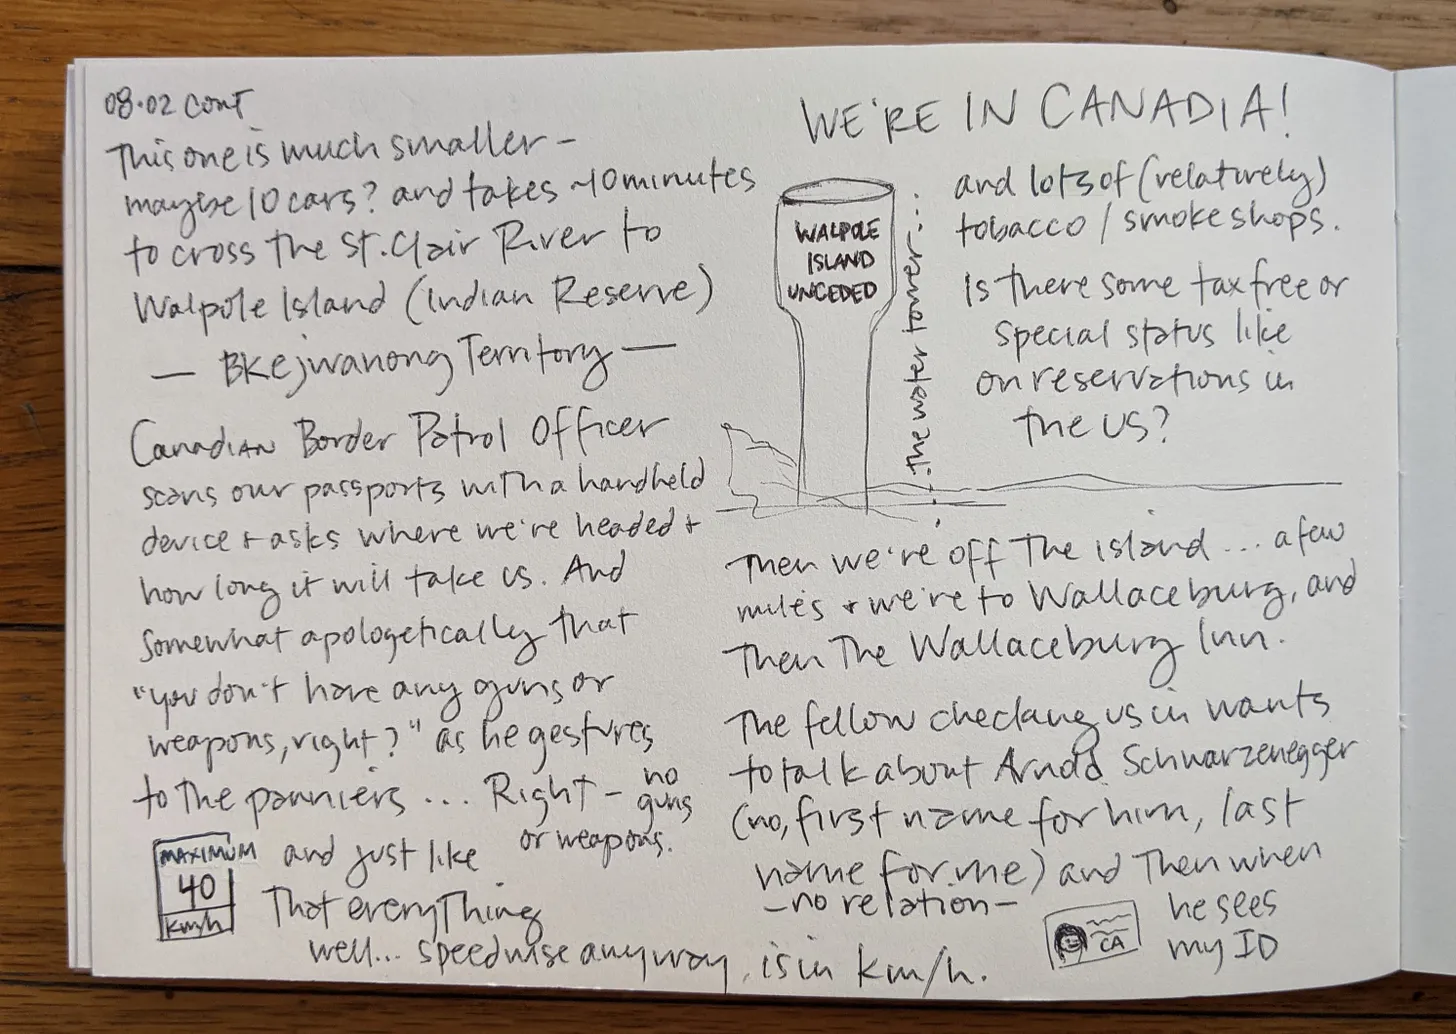 08.02 CONT
This one is much smaller –
maybe 10 cars? and takes ~10 minutes
to cross the St. Clair River to
Walpole Island (Indian Reserve)
— Bkejwanong Territory —
Canadian Border Patrol Officer
scans our passports with a handheld
device + asks where we're headed +
how long it will take us. And
somewhat apologetically that
"you don't have any guns or
weapons, right?" as he gestures
to the panniers ... Right – no
guns
or weapons.
MAXIMUM
40
km/h
and just like
That everything
well... speedwise anyway, is in km/h.
WE'RE IN CANADIA!
WALPOLE
ISLAND
UNCEDED
the water tower
and lots of (relatively)
tobacco / smoke shops.
Is there some tax free or
special status like
on reservations in
the US?
Then we're off The island ... a few
miles + we're to Wallaceburg, and
Then The Wallaceburg Inn.
The fellow checking us in wants
to talk about Arnold Schwarzenegger
(no, first name for him, last
name for me) and Then when
– no relation –
CA
he sees
my ID